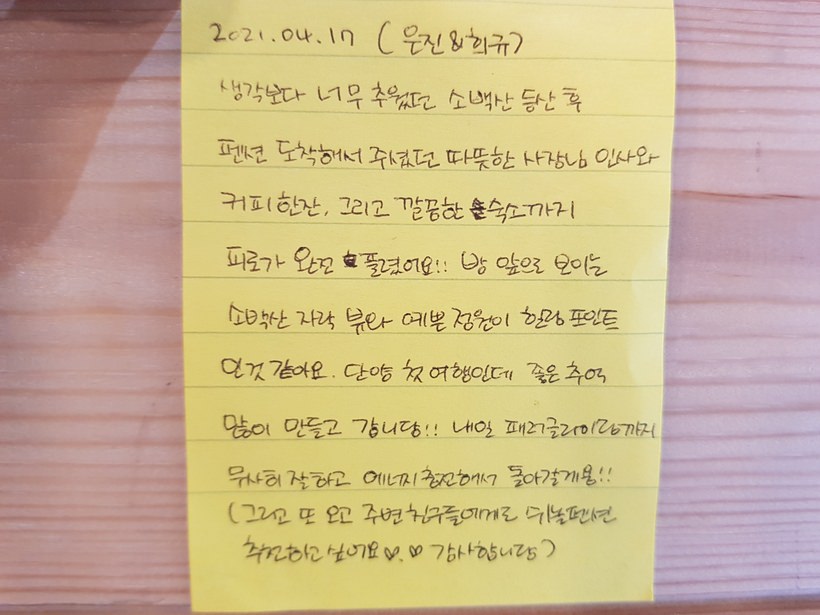 2021.04.17 (은진&희규)
생각보다 너무 추웠던 소백산 등산 후
펜션 도착해서 주셨던 따뜻한 사장님 인사와
커피한잔, 그리고 깔끔한 숙소까지
피로가 완전 풀렸어요!! 방 앞으로 보이는
소백산 자락 뷰와 예쁜 정원이 힐링 포인트
인것 같아요. 단양 첫 여행인데 좋은 추억
많이 만들고 갑니당!! 내일 패러글라이딩까지
무사히 잘하고 에너지 충전해서 돌아갈게용!!
(그리고 또 오고 주변 친구들에게도 펜션
추천하고 싶어요♡.♡ 감사합니당)